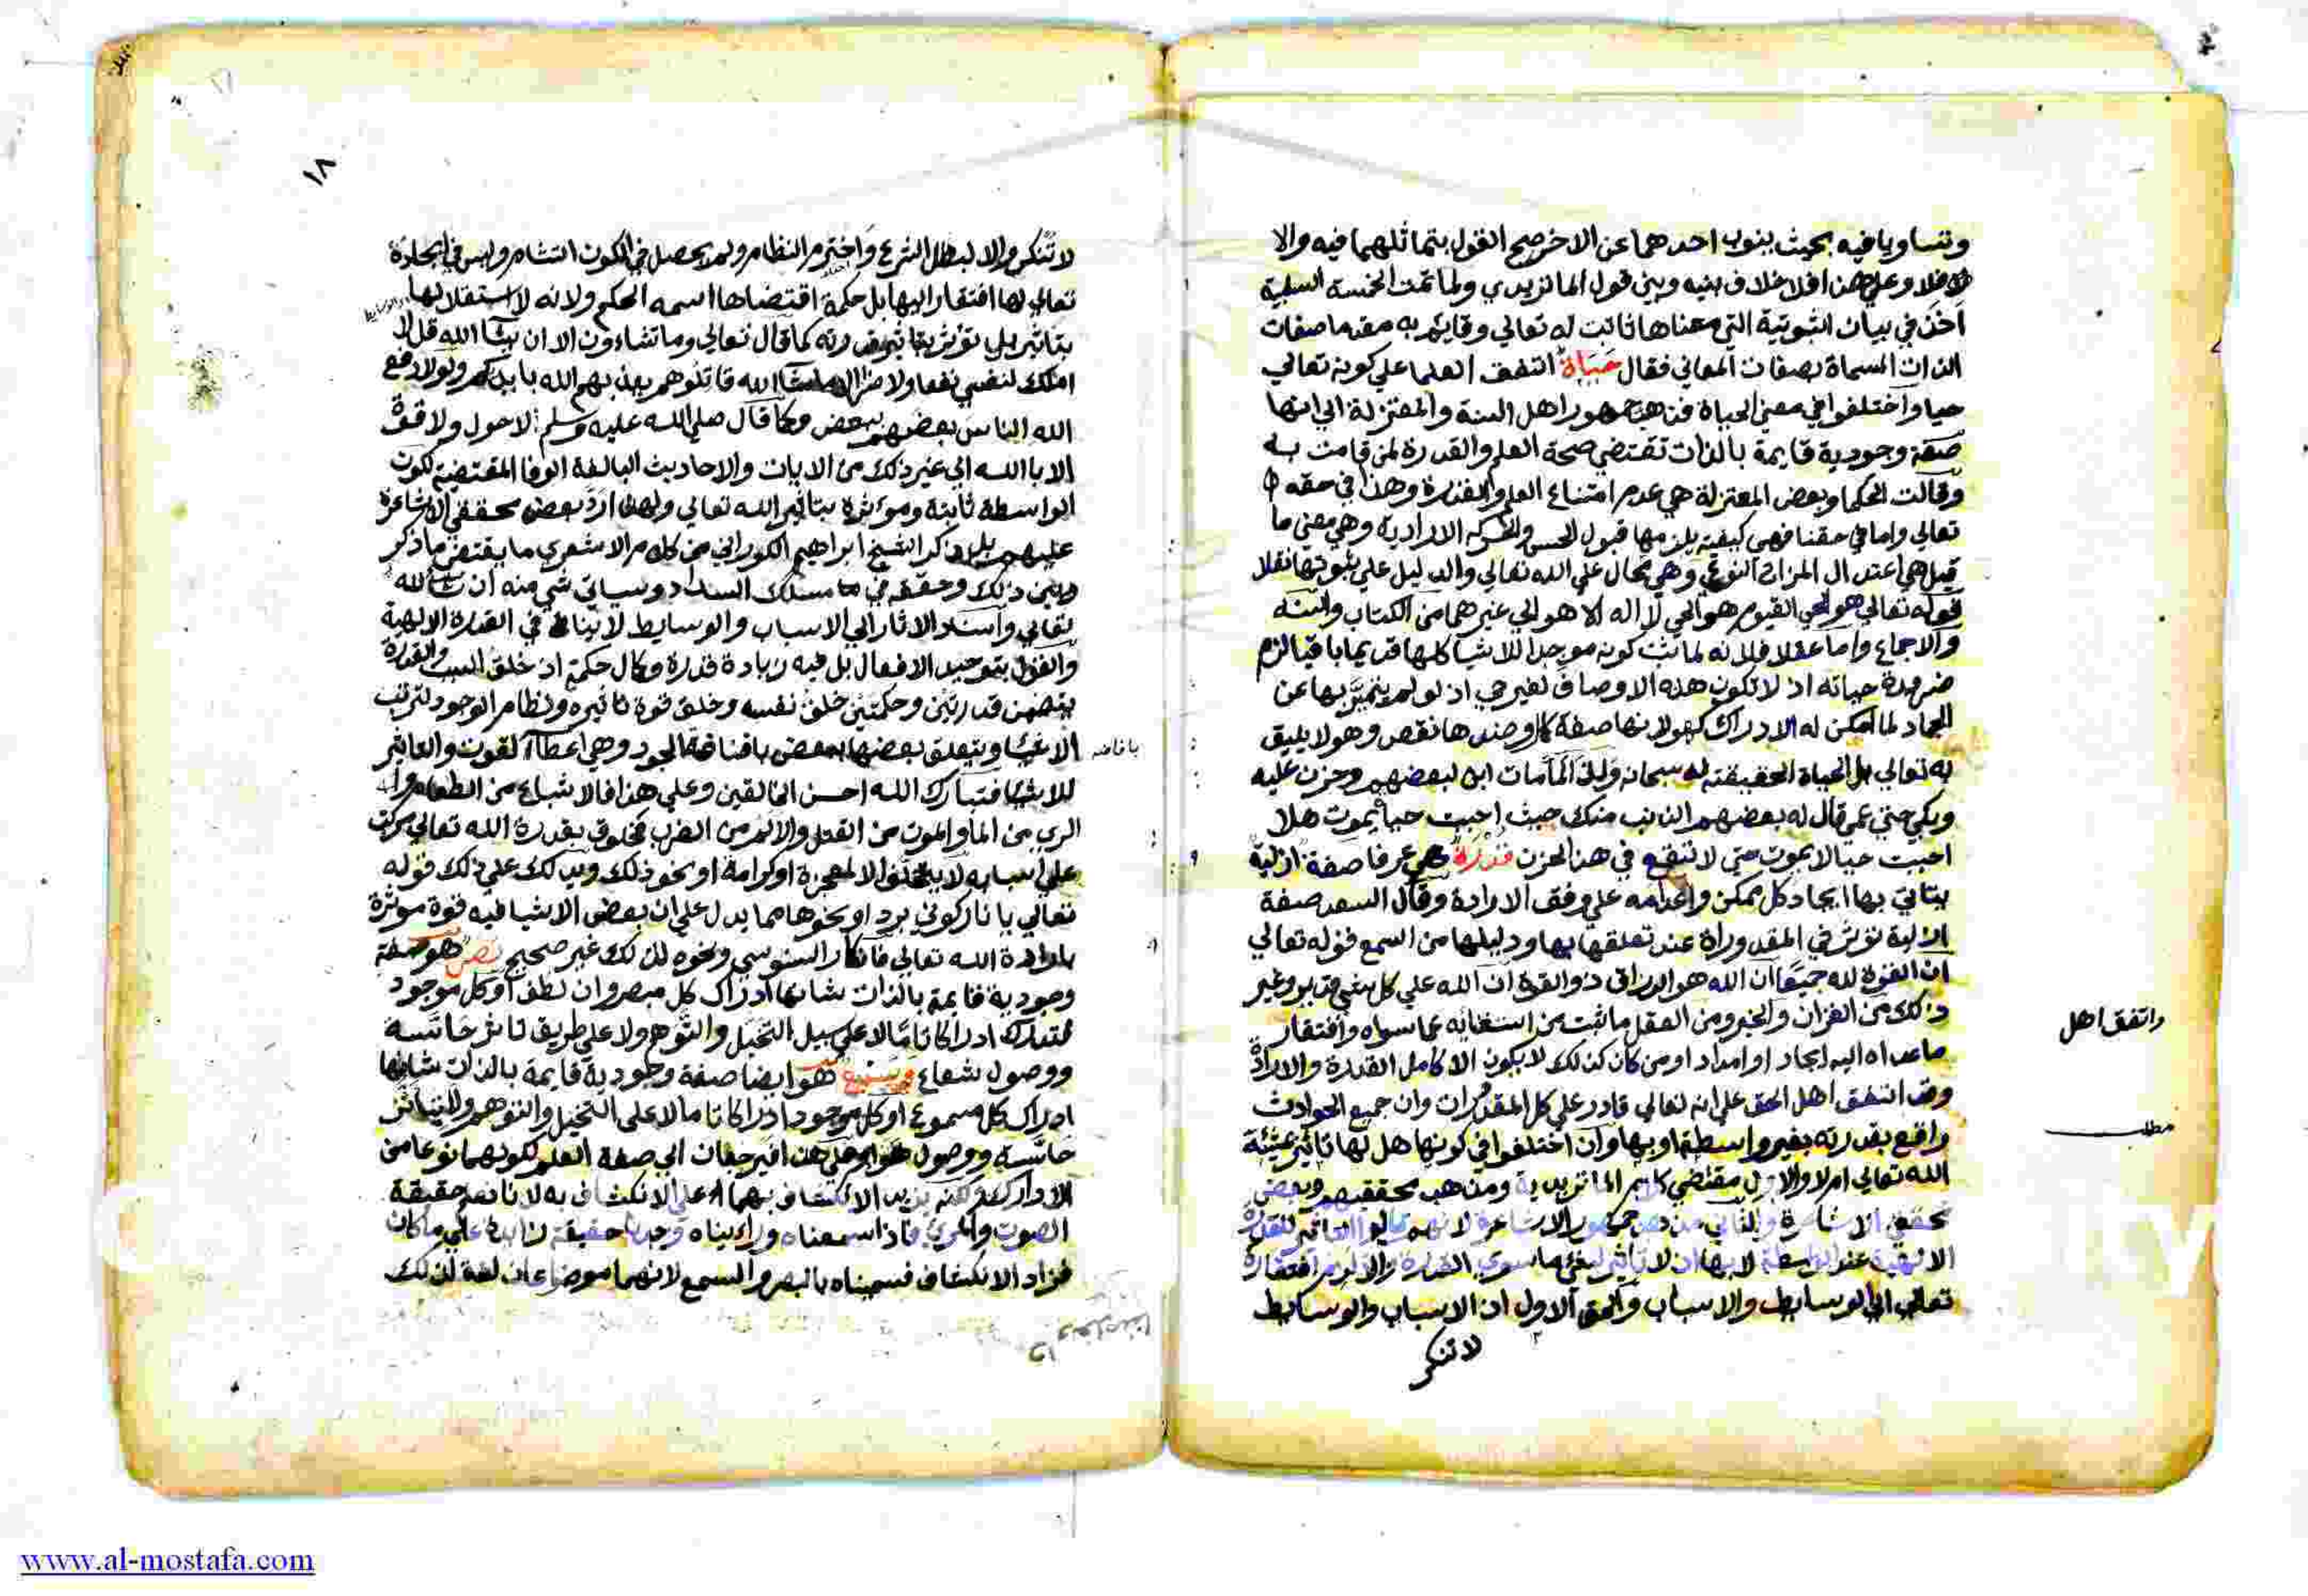 وتساويا فيه بحيث ينوب احدهما عن الاخر صح القول بتماثلهما فيه والا
فلا وعلي هذا فلا خلاف بينه وبين قول الماتريدي ولما تمت الخمسة السلبية
اخذ في بيان الثبوتية التي معناها ثابت له تعالي وقايم به مقدما صفات
الذات المسماة بصفات المعاني فقال حياة اتفق العلما علي كونه تعالي
حيا واختلفوا في معني الحياة فذهب جمهور اهل السنة والمعتزلة الي انها
صفة وجودية قايمة بالذات تقتضي صحة العلم والقدرة لمن قامت به
وقالت الحكما وبعض المعتزلة هي عدم امتناع العلم والقدرة وهذا في حقه
تعالي واما في حقنا فهي كيفية يلزمها قبول الحس والحركه الارادية وهي معني ما
قيل هي اعتدال المزاج النوعي وهي محال علي الله تعالي والدليل علي ثبوتها نقلا
قوله تعالي هو الحي القيوم هو الحي لا اله الا هو الي غيرهما من الكتاب والسنه
والاجماع واما عقلا فلانه لما ثبت كونه موجدا للاشيا كلها قديما باقيا لزم
ضرورة حياته اذ لا تكون هذه الاوصاف لغير حي اذ لو لم يتميز بها عن
الجماد لما امكن له الادراك ولانها صفة كمال وضدها نقص وهو لا يليق
به تعالي بل الحياة الحقيقة له سبحانه ولما مات ابن لبعضهم وحزن عليه
وبكي حتي عمي قال له بعضهم الذنب منك حيث احببت حيا يموت هلا
احببت حيا لا يموت حتي لا تقع في هذا الحزن قدرة هي عرفا صفة ازلية
يتاتي بها ايجاد كل ممكن واعدامه علي وفق الارادة وقال السعد صفة
ازلية تؤثر في المقدورات عند تعلقها بها ودليلها من السمع قوله تعالي
ان القوة لله جميعا ان الله هو الرزاق ذو القوة ان الله علي كل شي قدير وغير
ذلك من القران والخبر ومن العقل ما ثبت من استغنايه عما سواه وافتقار
ما عداه اليه ايجاد او امداد او من كان كذلك لا يكون الا كامل القدرة والارادة
وقد اتفق اهل الحق علي انه تعالي قادر علي كل المقدورات وان جميع الحوادث
واقع بقدرته بغير واسطة او بها وان اختلفوا في كونها هل لها تاثير بمشيئة
الله تعالي ام لا والاول مقتضي كلام الماتريدية ومذهب محققيهم وبعض
محققي الاشاعرة والثاني مذهب جمهور الاشاعرة لانهم قالوا التاثير للقدرة
الالهية عند الواسطة لا بها اذ لا تاثير لشي ما سوي القدرة والا لزم افتقاره
تعالي الي الوسايط والاسباب والحق الاول ان الاسباب والوسايط
لا تنكر
واتفق اهل
مطلب
١٨
لا تنكر والا لبطل الشرع واخترم النظام ولم يحصل في الكون التئام وليس في ايجاده
تعالي لها افتقار اليها بل حكمة اقتضاها اسمه الحكيم ولانه لا استقلال لها
بتاثير بل تؤثر بتاثير قدرته كما قال تعالي وما تشاءون الا ان يشآ الله قل لا
املك لنفسي نفعا ولا ضرا الا ما شآ الله قاتلوهم يعذبهم الله بايديكم ولولا دفع
الله الناس بعضهم ببعض وكما قال صلي الله عليه وسلم لا حول ولا قوة
الا بالله الي غير ذلك من الايات والاحاديث البالغة الوفا المقتضية لكون
الواسطة ثابتة ومؤثرة بتاثير الله تعالي ولهذا رد بعض محققي الاشاعرة
عليهم بل ذكر الشيخ ابراهيم الكوراني من كلام الاشعري ما يقتضي ما ذكر
وبين ذلك وحققه في مسلك السداد وسياتي شي منه ان شآ الله
تعالي واسناد الاثار الي الاسباب والوسايط لا ينافي القدرة الالهية
والقول بتوحيد الافعال بل فيه زيادة قدرة وكمال حكمة اذ خلق السبب والقدرة
يتضمن قدرتين وحكمتين خلق نفسه وخلق قوة تاثيره ونظام الوجود لترتب
الاشيا ويتعلق بعضها ببعض بافاضة الجود وهي اعطآ القوت والتاثير
للاشيا فتبارك الله احسن الخالقين وعلي هذا فالاشباع من الطعام و
الري من الما والموت من القتل والالم من الضرب مخلوق بقدرة الله تعالي مرتب
علي اسبابه لا يتخلف الا لمعجزة او كرامة او نحو ذلك ويدلك علي ذلك قوله
تعالي يا نار كوني بردا ونحوها مما يدل علي ان بعض الاشيا فيه قوة موثرة
بارادة الله تعالي فانكار السنوسي ونحوه لذلك غير صحيح بصر هو صفة
وجودية قايمة بالذات شانها ادراك كل مبصر وان لطف او كل موجود
ادراكا تاما لا علي سبيل التخيل والتوهم ولا علي طريق تاثر حاسة
ووصول شعاع وسمع هو ايضا صفة وجودية قايمة بالذات شانها
ادراك كل مسموع او كل موجود ادراكا تاما لا علي التخيل والتوهم والتاثر
حاسة ووصول هوا وعلي هذا فيرجعان الي صفة العلم لكونهما نوعا من
الادراك ولكنه يزيد الانكشاف بهما علي الانكشاف به لانا نعلم حقيقة
الصوت والمري فاذا سمعناه ورايناه وجدنا حقيقة زايدة علي ما كان
فزاد الانكشاف فسميناه بالبصر والسمع لانهما موضوعان لغة لذلك
www.al-mostafa.com